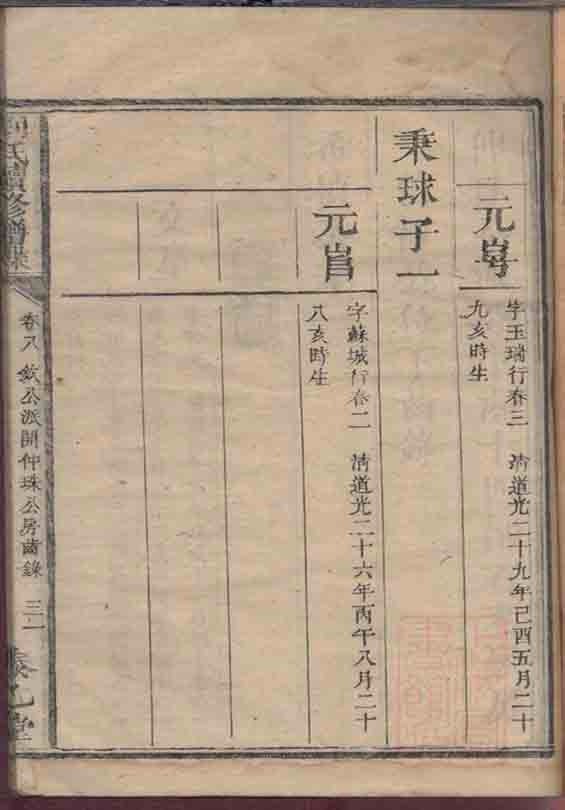 元㟧
字玉瑞行春三 清道光二十九年己酉五月二十
九亥時生
秉球子一
元㟭
字蘇城行春二 清道光二十六年丙午八月二十
八亥時生
氏續修譜牒
卷八 欽公派開仲珠公房齒錄 三一
乙堂